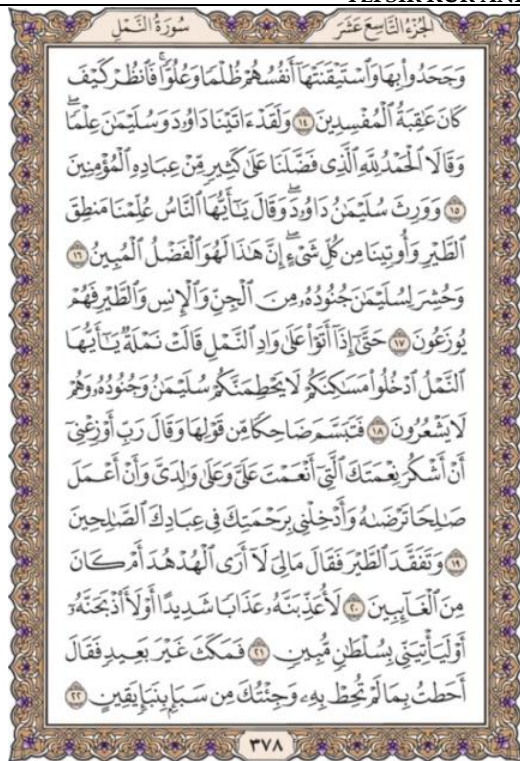 سُورَةُ النَّمْلِ الجُزْءُ التَّاسِعَ عَشَرَ
وَجَحَدُوا۟ بِهَا وَٱسْتَيْقَنَتْهَآ أَنفُسُهُمْ ظُلْمًا وَعُلُوًّا ۚ فَٱنظُرْ كَيْفَ
كَانَ عَٰقِبَةُ ٱلْمُفْسِدِينَ ١٤ وَلَقَدْ ءَاتَيْنَا دَاوُۥدَ وَسُلَيْمَٰنَ عِلْمًا ۖ
وَقَالَا ٱلْحَمْدُ لِلَّهِ ٱلَّذِى فَضَّلَنَا عَلَىٰ كَثِيرٍ مِّنْ عِبَادِهِ ٱلْمُؤْمِنِينَ
١٥ وَوَرِثَ سُلَيْمَٰنُ دَاوُۥدَ ۖ وَقَالَ يَٰٓأَيُّهَا ٱلنَّاسُ عُلِّمْنَا مَنطِقَ
ٱلطَّيْرِ وَأُوتِينَا مِن كُلِّ شَىْءٍ ۖ إِنَّ هَٰذَا لَهُوَ ٱلْفَضْلُ ٱلْمُبِينُ ١٦
وَحُشِرَ لِسُلَيْمَٰنَ جُنُودُهُۥ مِنَ ٱلْجِنِّ وَٱلْإِنسِ وَٱلطَّيْرِ فَهُمْ
يُوزَعُونَ ١٧ حَتَّىٰٓ إِذَآ أَتَوْا۟ عَلَىٰ وَادِ ٱلنَّمْلِ قَالَتْ نَمْلَةٌ يَٰٓأَيُّهَا
ٱلنَّمْلُ ٱدْخُلُوا۟ مَسَٰكِنَكُمْ لَا يَحْطِمَنَّكُمْ سُلَيْمَٰنُ وَجُنُودُهُۥ وَهُمْ
لَا يَشْعُرُونَ ١٨ فَتَبَسَّمَ ضَاحِكًا مِّن قَوْلِهَا وَقَالَ رَبِّ أَوْزِعْنِىٓ
أَنْ أَشْكُرَ نِعْمَتَكَ ٱلَّتِىٓ أَنْعَمْتَ عَلَىَّ وَعَلَىٰ وَٰلِدَىَّ وَأَنْ أَعْمَلَ
صَٰلِحًا تَرْضَىٰهُ وَأَدْخِلْنِى بِرَحْمَتِكَ فِى عِبَادِكَ ٱلصَّٰلِحِينَ
١٩ وَتَفَقَّدَ ٱلطَّيْرَ فَقَالَ مَالِىَ لَآ أَرَى ٱلْهُدْهُدَ أَمْ كَانَ
مِنَ ٱلْغَآئِبِينَ ٢٠ لَأُعَذِّبَنَّهُۥ عَذَابًا شَدِيدًا أَوْ لَأَا۟ذْبَحَنَّهُۥٓ
أَوْ لَيَأْتِيَنِّى بِسُلْطَٰنٍ مُّبِينٍ ٢١ فَمَكَثَ غَيْرَ بَعِيدٍ فَقَالَ
أَحَطتُ بِمَا لَمْ تُحِطْ بِهِۦ وَجِئْتُكَ مِن سَبَإٍۭ بِنَبَإٍ يَقِينٍ ٢٢
٣٧٨